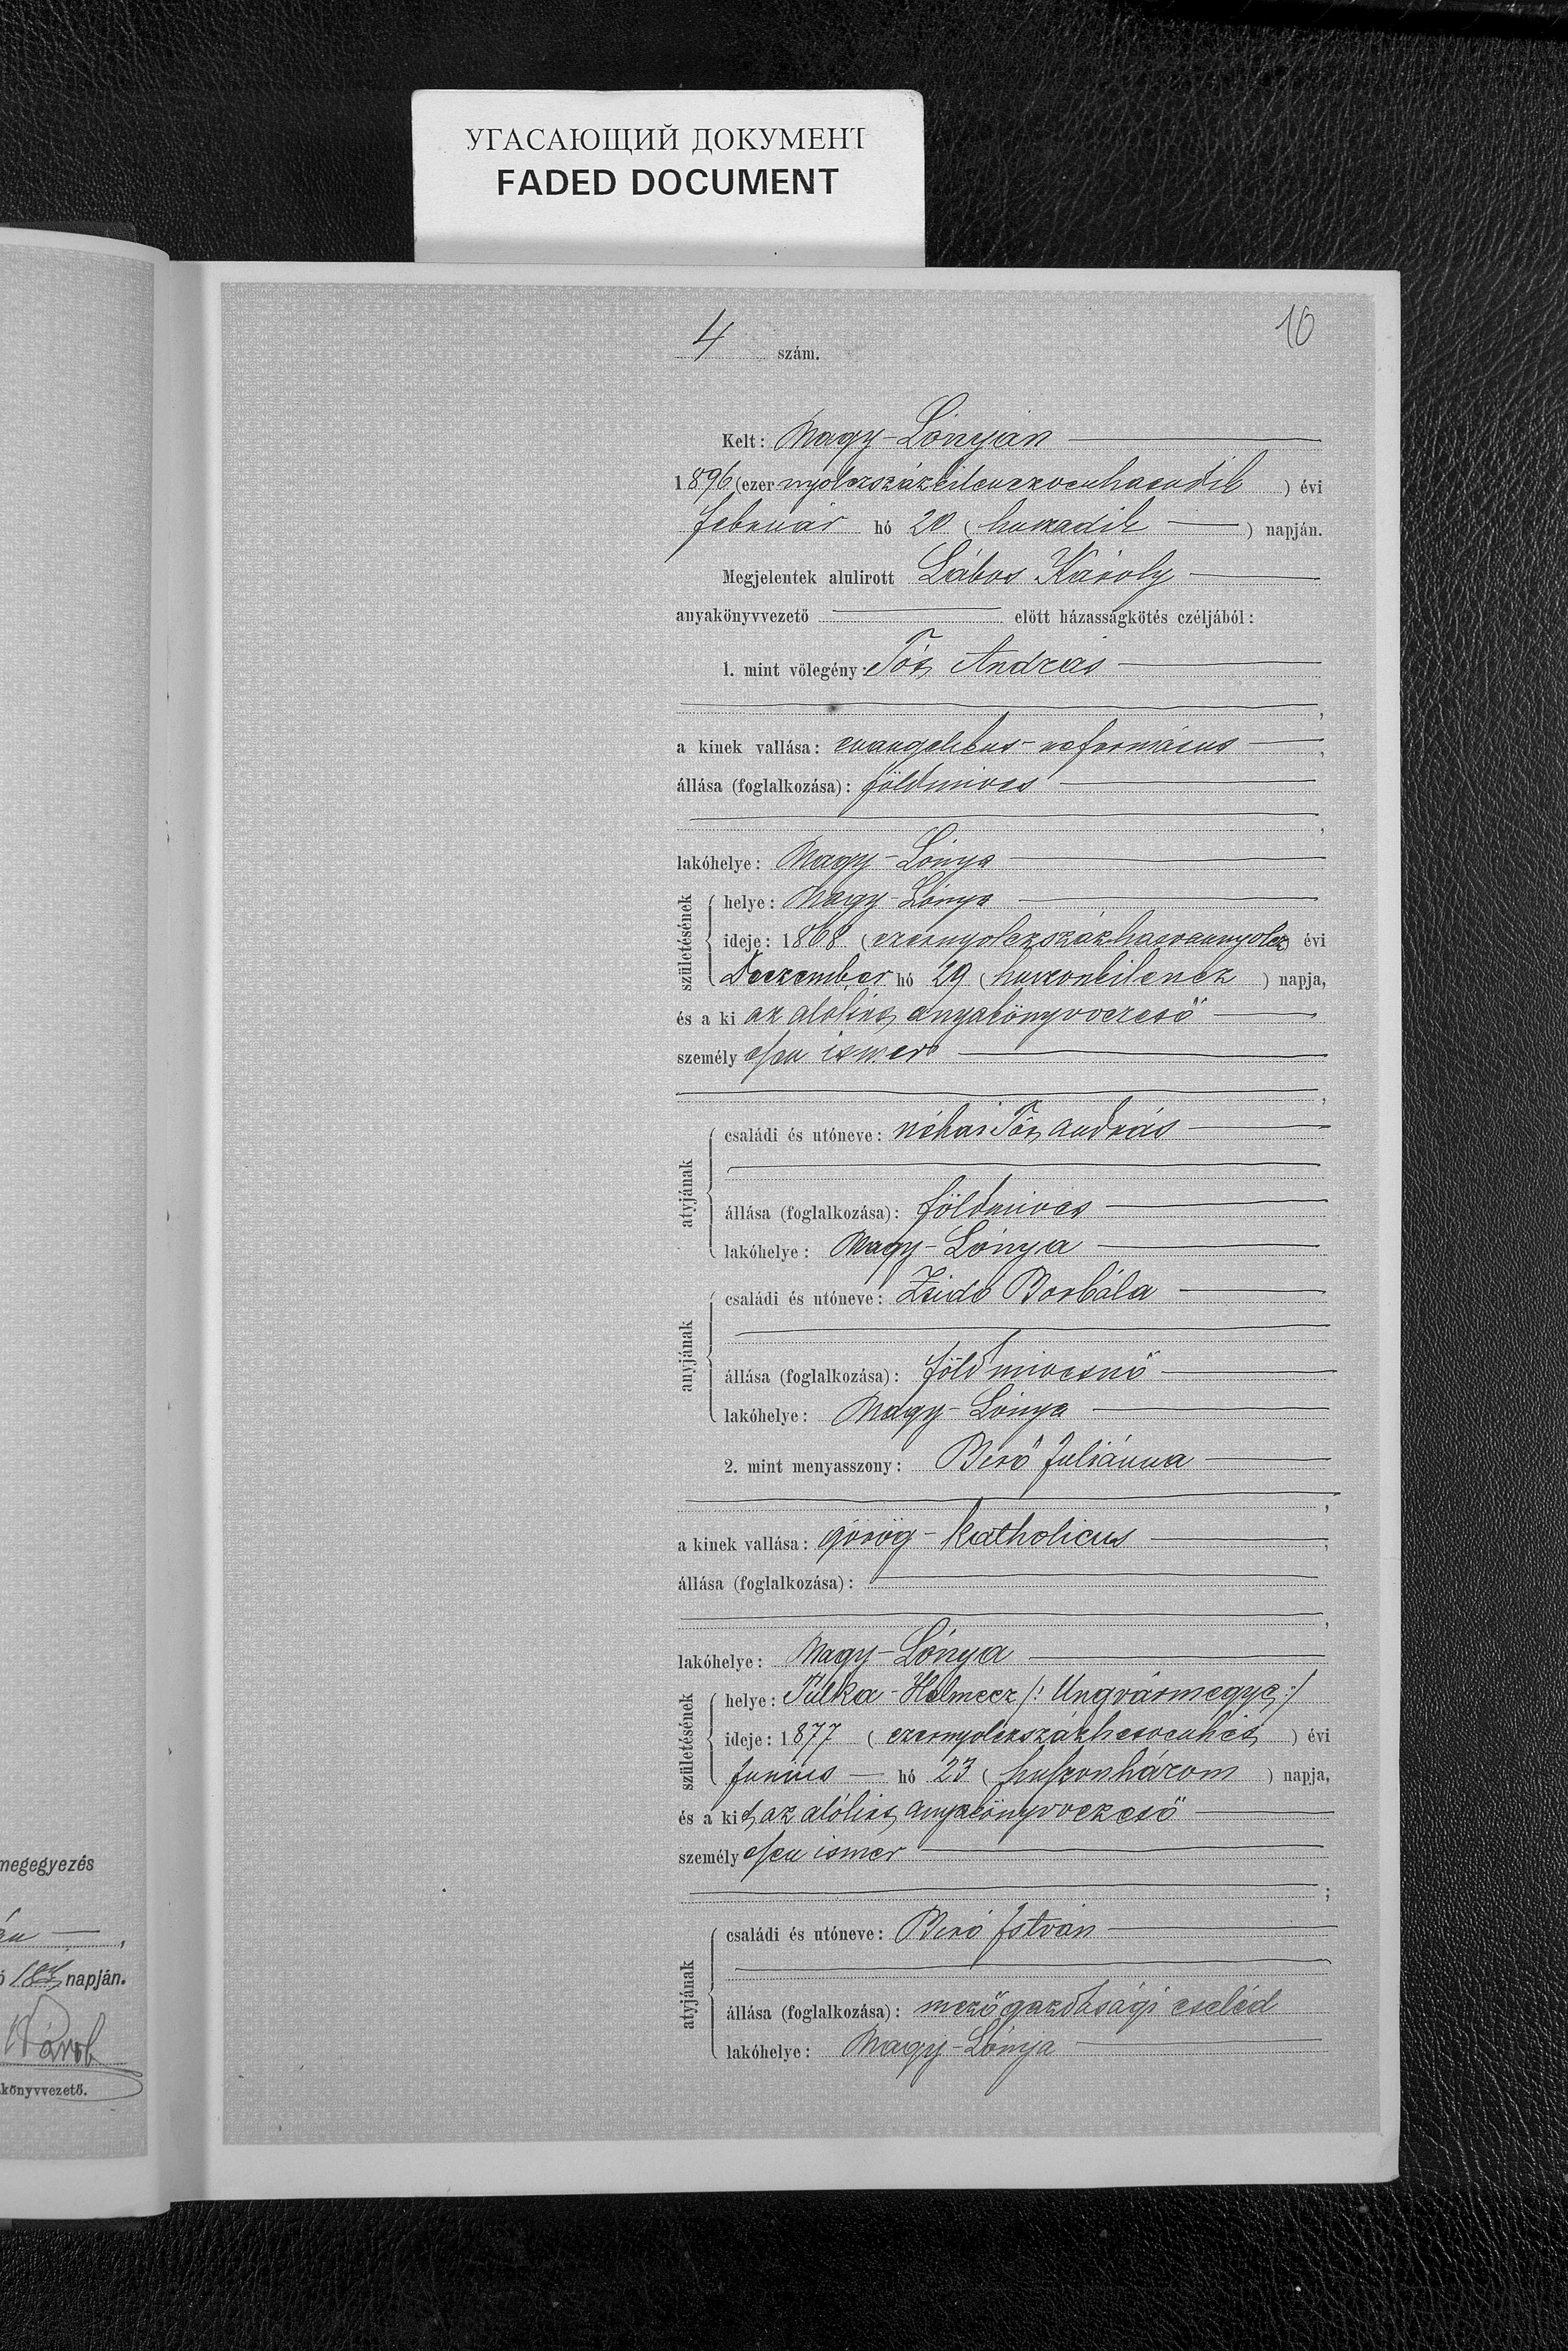 УГАСАЮЩИЙ ДОКУМЕНТ
FADED DOCUMENT
10
4 szám.
Kelt: Nagy-Lónyán
1896 (ezer nyolczszázkilenczvenhatodik) évi
február hó 20 (huszadik) napján.
Megjelentek alulirott Lábos Károly
anyakönyvvezető előtt házasságkötés czéljából:
1. mint vőlegény: Tót András
a kinek vallása: evangelikus-református,
állása (foglalkozása): földmives
lakóhelye: Nagy-Lónya
születésének
helye: Nagy-Lónya
ideje: 1868 (ezernyolczszázhatvannyolcz) évi
Deczember hó 29 (huszonkilencz) napja,
és a ki az alólirt anyakönyvvezető
személyesen ismer
atyjának
családi és utóneve: néhai Tót András
állása (foglalkozása): földmives
lakóhelye: Nagy-Lónya
anyjának
családi és utóneve: Zsidó Borbála
állása (foglalkozása): földmivesnő
lakóhelye: Nagy-Lónya
2. mint menyasszony: Biró Juliánna
a kinek vallása: görög-katholicus,
állása (foglalkozása):
lakóhelye: Nagy-Lónya
születésének
helye: Tulka-Helmecz /: Ungvármegye :/
ideje: 1877 (ezernyolczszázhetvenhét) évi
Junius hó 23 (huszonhárom) napja,
és a kit az alólirt anyakönyvvezető
személyesen ismer
;
atyjának
családi és utóneve: Biró István
állása (foglalkozása): mezőgazdasági cseléd
lakóhelye: Nagy-Lónya
megegyezés
napján.
könyvvezető.